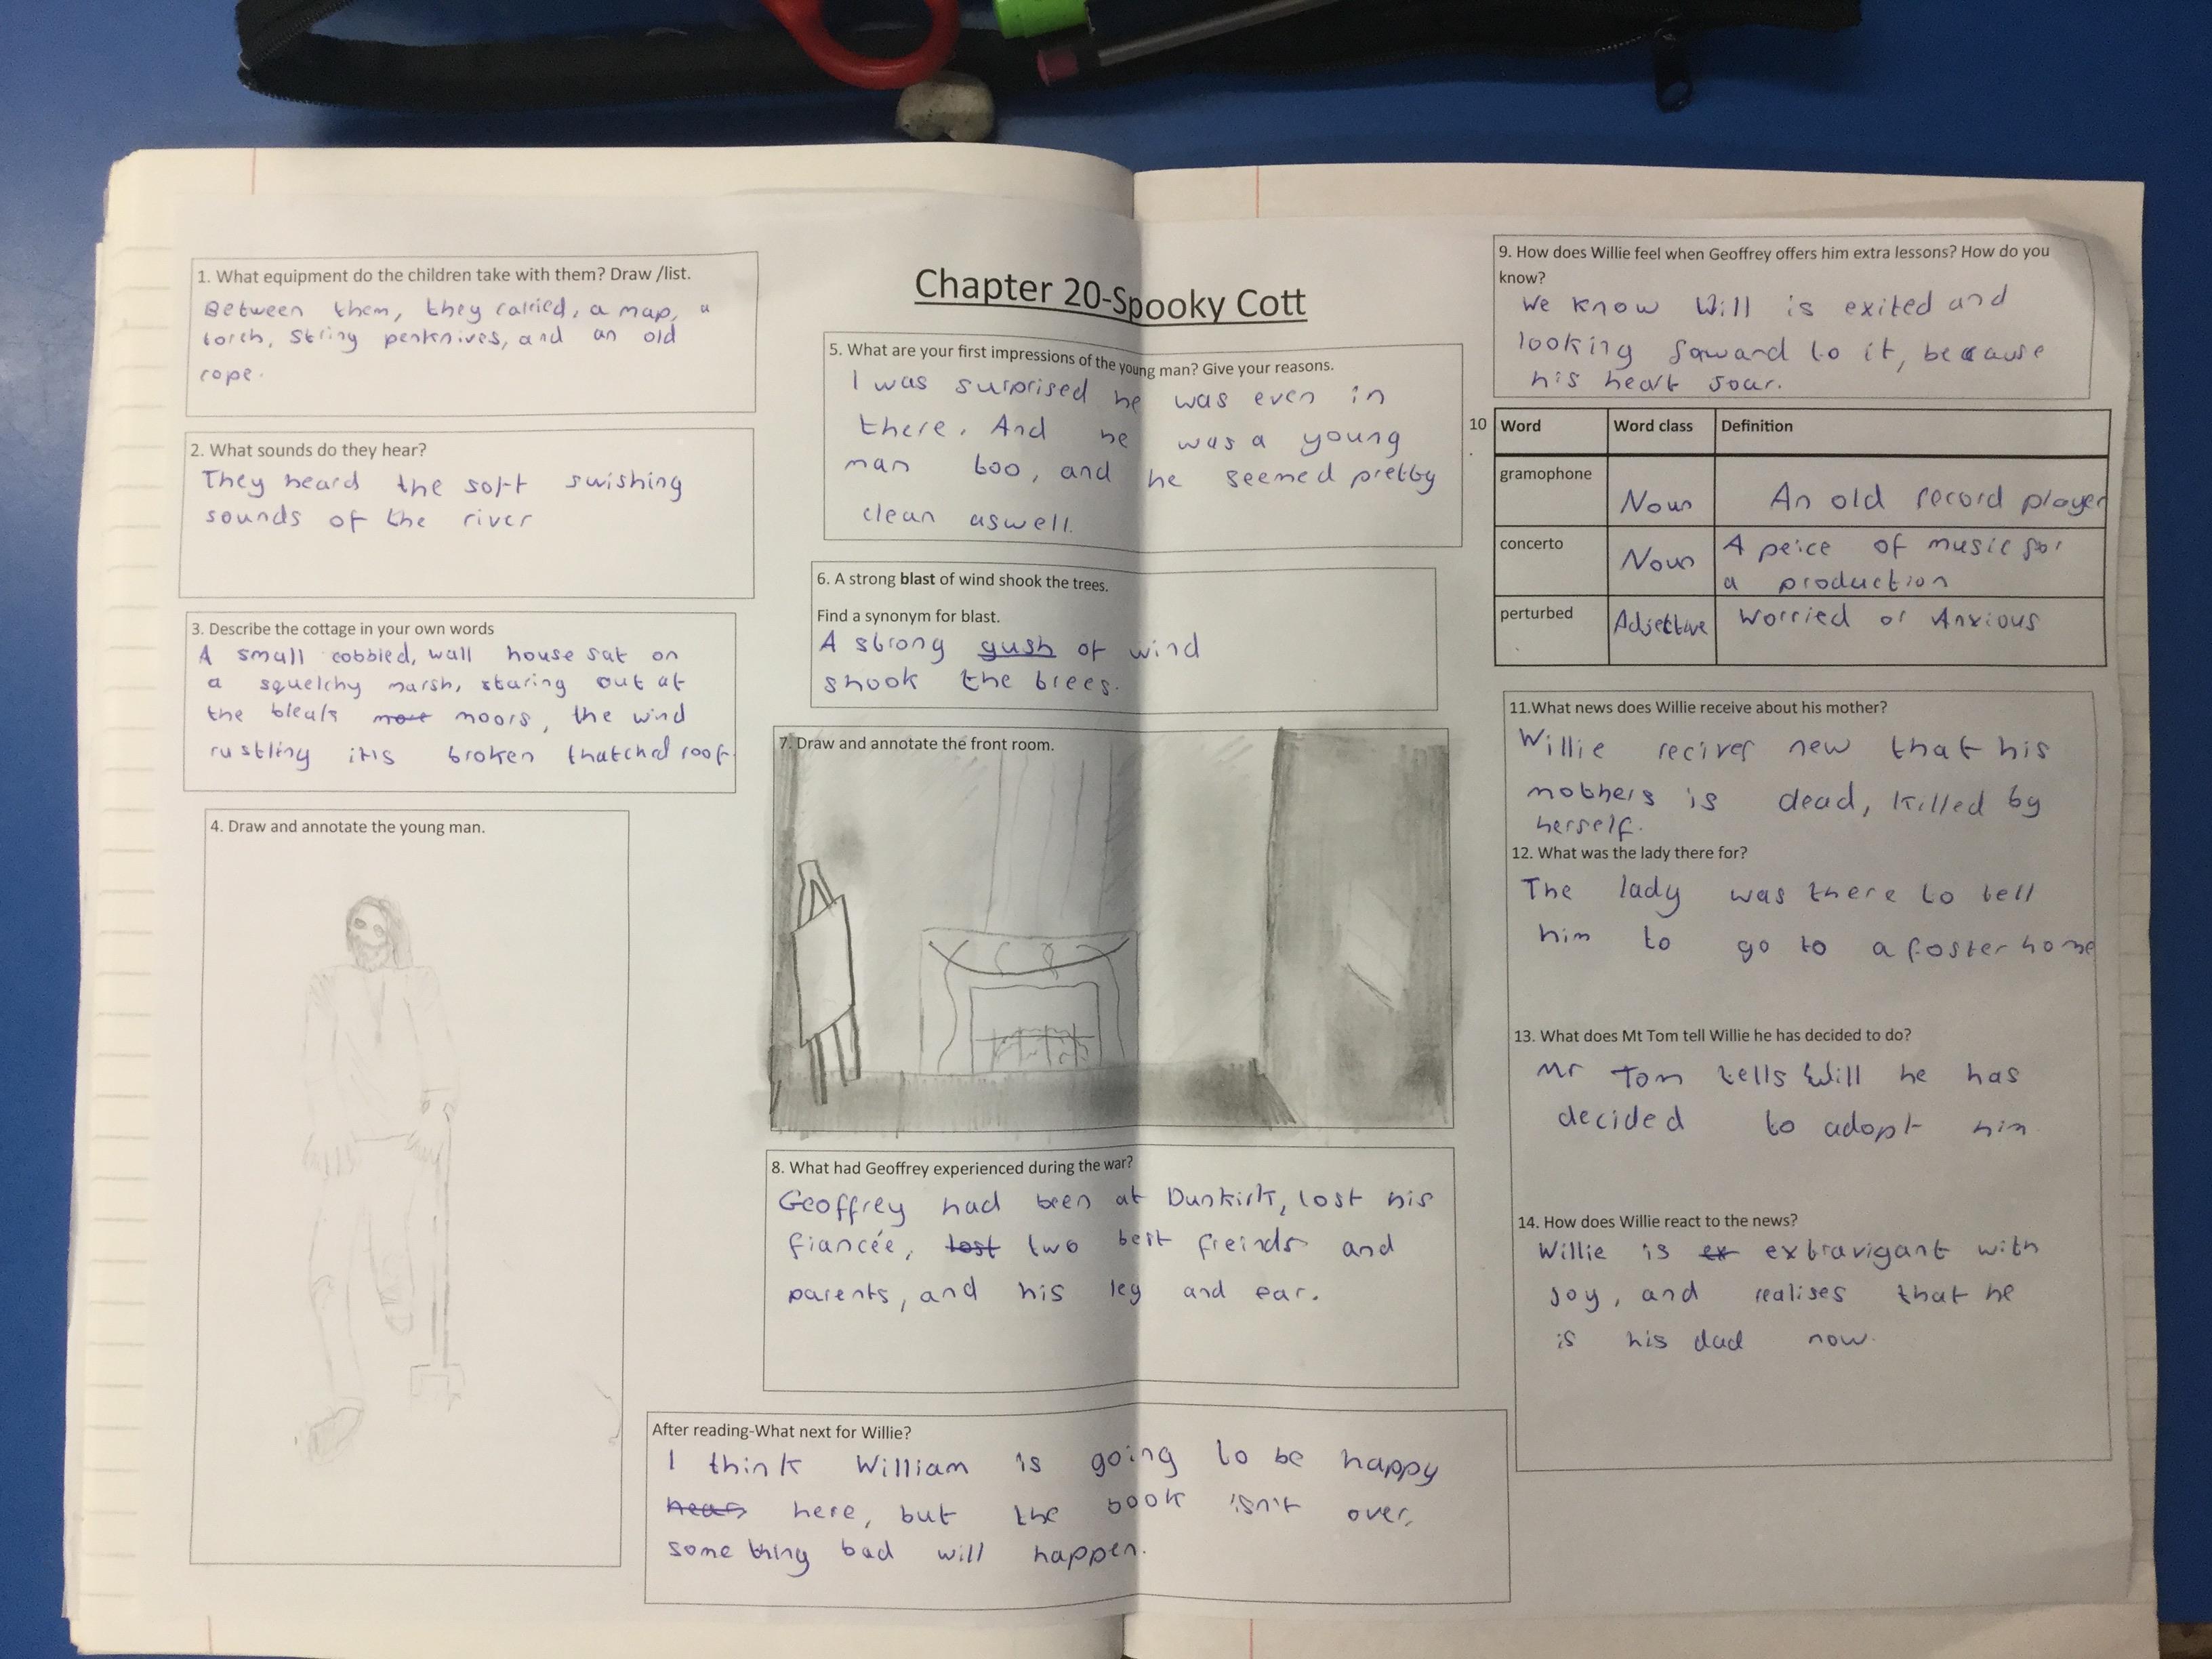 Chapter 20-Spooky Cott
1. What equipment do the children take with them? Draw /list.
Between them, they carried, a map, a
torch, string penknives, and an old
rope.
2. What sounds do they hear?
They heard the soft swishing
sounds of the river
3. Describe the cottage in your own words
A small cobbled, wall house sat on
a squelchy marsh, staring out at
the bleak more moors, the wind
rustling it's broken thatched roof.
4. Draw and annotate the young man.
5. What are your first impressions of the young man? Give your reasons.
I was surprised he was even in
there. And he was a young
man too, and he seemed pretty
clean aswell.
6. A strong blast of wind shook the trees.
Find a synonym for blast.
A strong gush of wind
shook the trees.
7. Draw and annotate the front room.
8. What had Geoffrey experienced during the war?
Geoffrey had been at Dunkirk, lost his
fiancée, lost two best freinds and
parents, and his leg and ear.
After reading-What next for Willie?
I think William is going to be happy
hear here, but the book isn't over,
something bad will happen.
9. How does Willie feel when Geoffrey offers him extra lessons? How do you
know?
We know Will is exited and
looking foward to it, because
his heart soar.
10 Word Word class Definition
.
gramophone Noun An old record player
concerto Noun A peice of music for
a production
perturbed Adjective Worried or Anxious
11.What news does Willie receive about his mother?
Willie recives new that his
mothers is dead, killed by
herself.
12. What was the lady there for?
The lady was there to tell
him to go to a foster home
13. What does Mt Tom tell Willie he has decided to do?
Mr Tom tells Will he has
decided to adopt him
14. How does Willie react to the news?
Willie is ex extravigant with
joy, and realises that he
is his dad now.